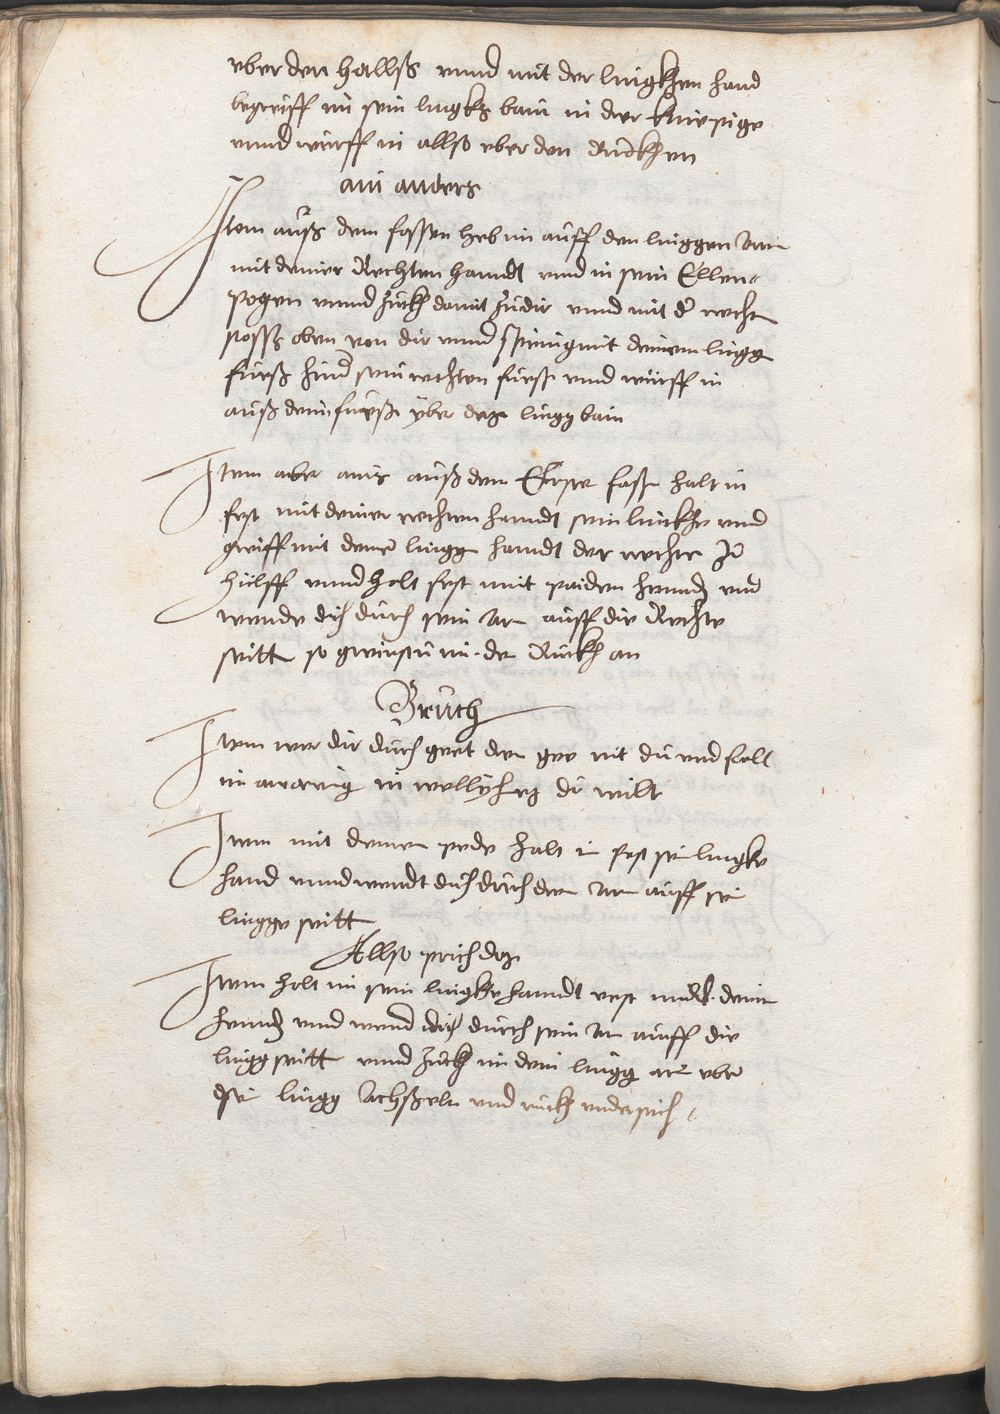 vber den hallß vnnd mit der lingkhen hand
begreiff im sein lingks bain in der kniepige
vnnd würff in allso vber den Ruckhen
ain anders
Item auß dem fassen heb im auff den linggen Arm
mit deiner Rechten hanndt vnd in sein Ellen„
pogen vnnd Zuckh damit Zu dir vnnd mit der recht
stoss oben von dir vnnd spring mit deinem lingg
fueß hinder sein rechten fueß vnd würff in
auß dem fueß yber daz lingg bain
Item aber ains auß dem Erste fass halt in
fest mit deiner rechten hanndt sein linckhe vnd
greiff mit deiner lingg hanndt der rechte Zu
hülff vnnd halt fest mit paiden hennden vnd
wende dich durch sein Arm auff die Rechte
seitt so gwinstu im der Ruckh an
Bruch
Item wer dir durch geet dem gee nit du vnd felt
im in wellyhez du wilt
Item mit deinen pede halt im fest sein lingke
hand vnnd wendt dich durch den Arm auff sein
lingge seitt
Allso prich daz
Item helt im sein lingke hanndt vest mit deine
hennden vnd wend dich durch sein Arm auff die
lingg seitt vnnd Zuckh im den lingg arm vber
die lingg Achßeln vnd ruckh vndersich